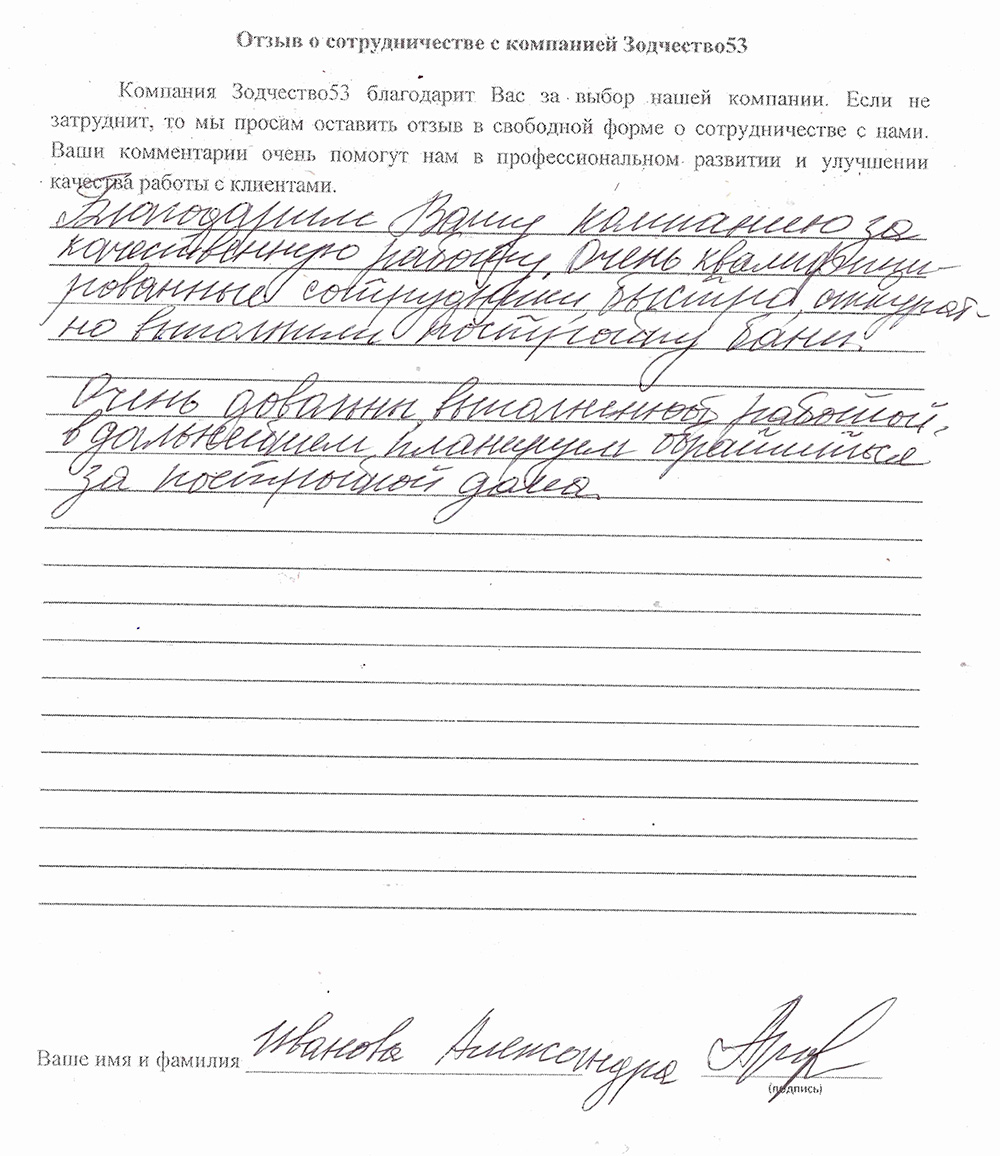 Отзыв о сотрудничестве с компанией Зодчество53
Компания Зодчество53 благодарит Вас за выбор нашей компании. Если не
затруднит, то мы просим оставить отзыв в свободной форме о сотрудничестве с нами.
Ваши комментарии очень помогут нам в профессиональном развитии и улучшении
качества работы с клиентами.
Благодарим Вашу компанию за
качественную работу. Очень квалифици-
рованные сотрудники быстро, аккурат-
но выполнили постройку бани.
Очень довольны выполненной работой.
в дальнейшем планируем обратиться
за постройкой дома.
Ваше имя и фамилия Иванова Александра
(подпись)